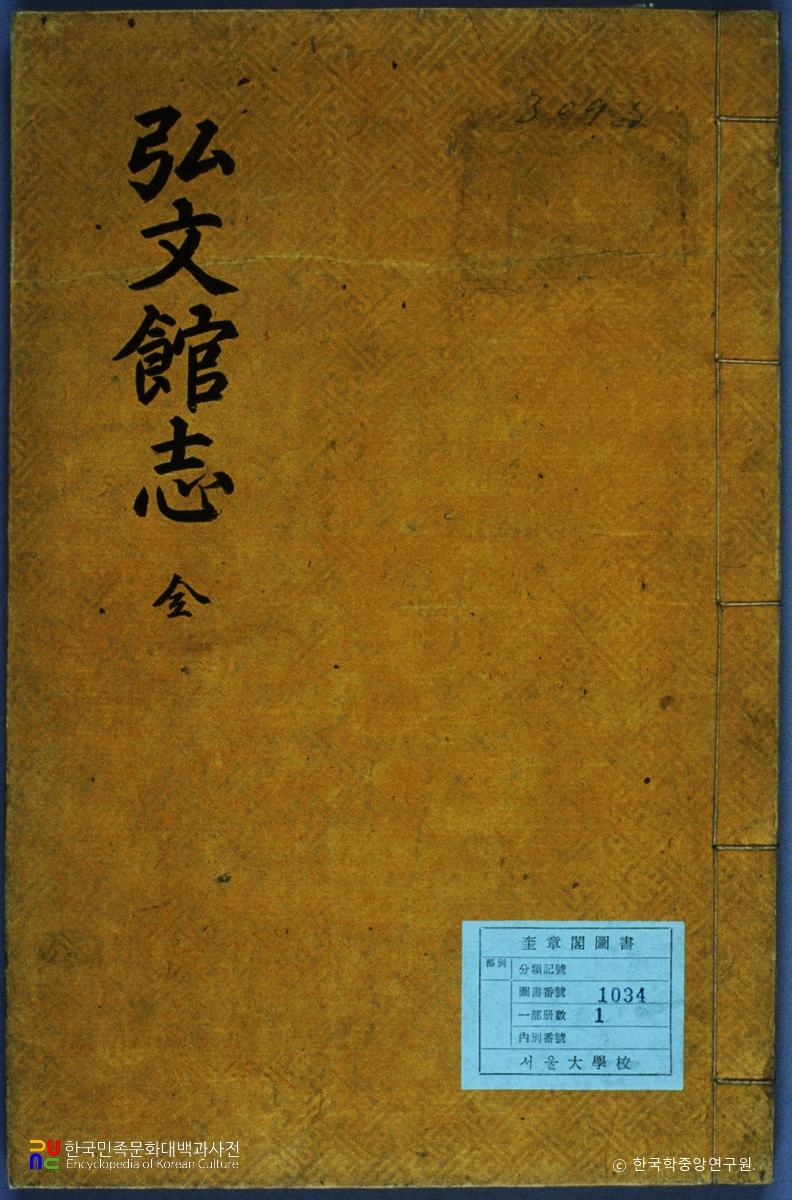 弘文館志 全
3093
奎章閣圖書
部別
分類記號
圖書番號 1034
一部冊數 1
內別番號
서울大學校
한국민족문화대백과사전
Encyclopedia of Korean Culture
ⓒ 한국학중앙연구원